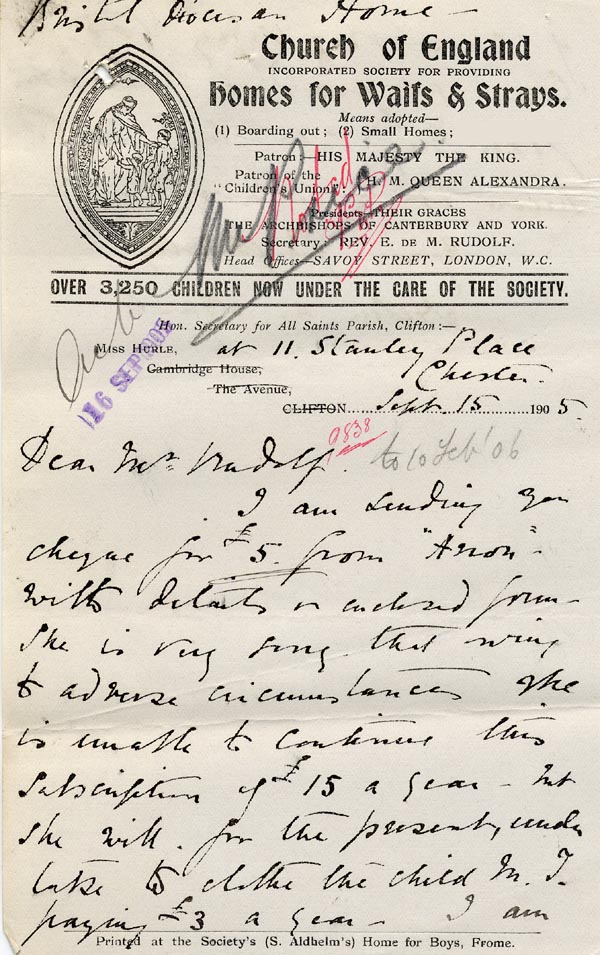 Bristol Diocesan Home —
Church of England
INCORPORATED SOCIETY FOR PROVIDING
Homes for Waifs & Strays.
Means adopted—
(1) Boarding out; (2) Small Homes;
Patron:—HIS MAJESTY THE KING.
Patron of the
"Children's Union" H. M. QUEEN ALEXANDRA.
Presidents—THEIR GRACES
THE ARCHBISHOPS OF CANTERBURY AND YORK.
Secretary. REV. E. DE M. RUDOLF.
Head Offices—SAVOY STREET, LONDON, W.C.
OVER 3,250 CHILDREN NOW UNDER THE CARE OF THE SOCIETY.
Hon. Secretary for All Saints Parish, Clifton:—
MISS HURLE, at 11. Stanley Place
Cambridge House, Chester.
The Avenue,
16 SEP 1905
CLIFTON Sept. 15 1905.
0838
Dear Mr. Rudolf. to 10 Feb '06
I am sending you
cheque for £5. from "Anon"-
with details on enclosed form -
She is very sorry that owing
to adverse circumstances she
is unable to continue this
subscription of £15 a year - but
she will, for the present, under
take to clothe the child M. T.
paying £3 a year - I am
Printed at the Society's (S. Aldhelm's) Home for Boys, Frome.